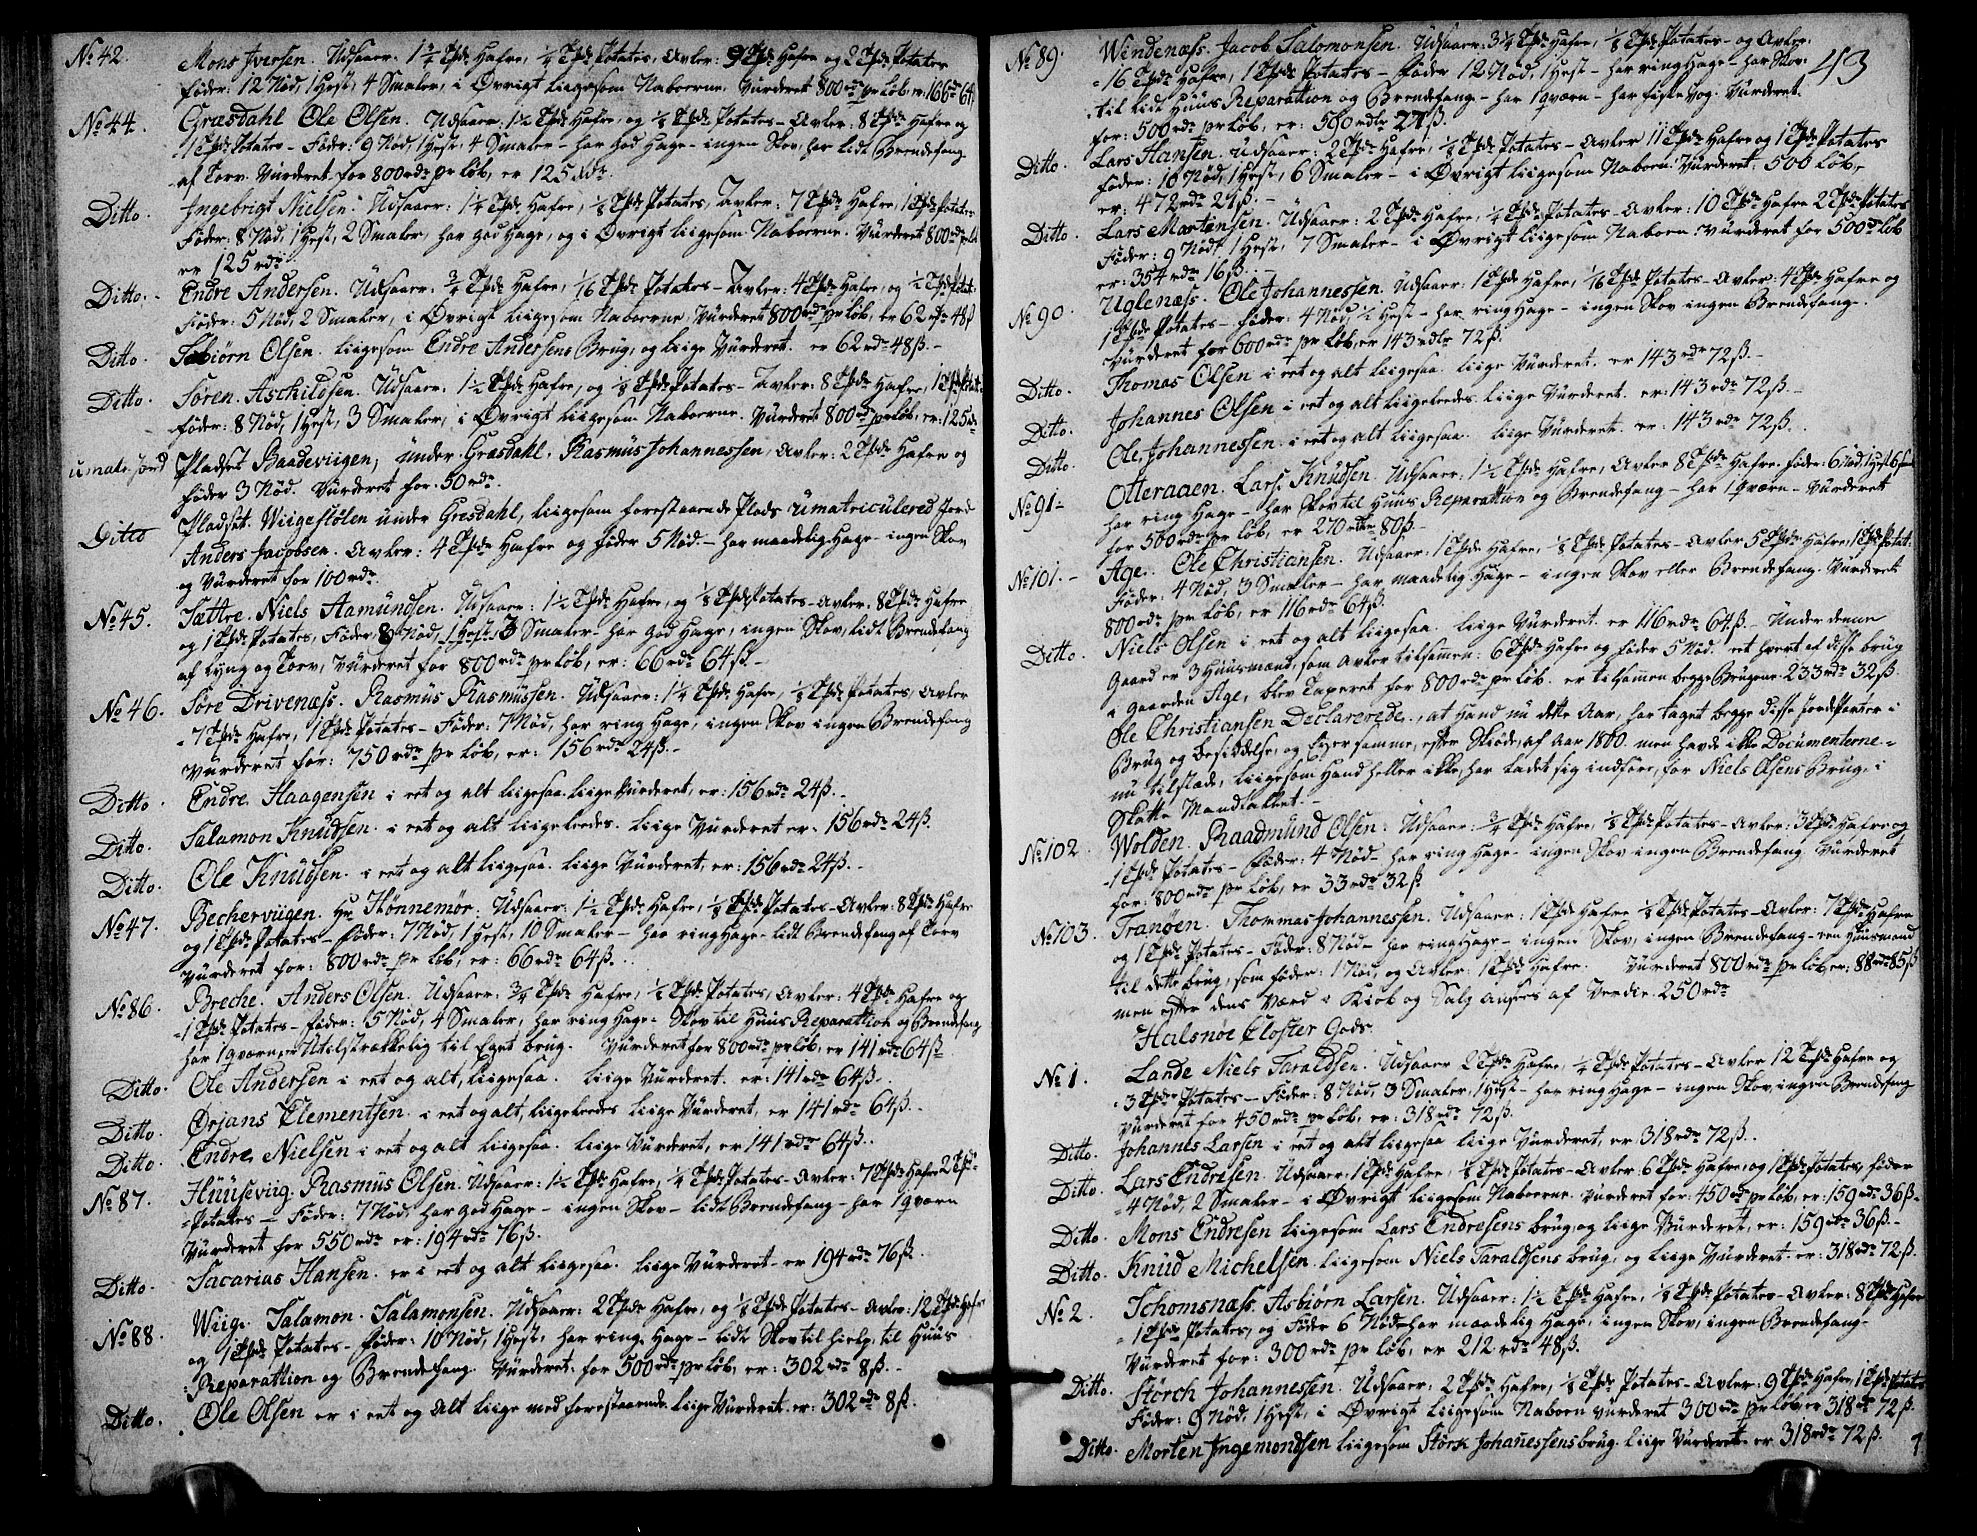 No 42. Mons Iversen. Udsaaer: 1 3/4 Tdr Hafre, 1/4 Tde Potates, Avler: 9 Tdr Hafre og 2 Tdr Potates
føder: 12 Nød, 1 Hest, 4 Smaler, i Øvrigt liigesom Naboerne. Vurderet 800 rdr pr løb, er 166 rdr 64
No 44. Græsdahl Ole Olsen. Udsaaer: 1 1/2 Tdr Hafre, og 1/8 Tde Potates - Avler: 8 Tdr Hafre og
1 Tde Potates - Føder: 9 Nød, 1 Hest, 4 Smaler - har god Hage - ingen Skov, har lidt Brendefang
af Torv. Vurderet for 800 rdr pr løb, er 125 rdr.
Ditto. Ingebrigt Nielsen. Udsaaer: 1 1/4 Tdr Hafre, 1/8 Tde Potates, Avler: 7 Tdr Hafre, 1 Tde Potates
Føder: 8 Nød, 1 Hest, 2 Smaler, har god Hage, og i Øvrigt liigesom Naboerne. Vurderet 800 rdr pr løb
er 125 rdr
Ditto. Endre Andersen. Udsaaer: 3/4 Tde Hafre, 1/16 Tde Potates - Avler: 4 Tdr Hafre, og 1/2 Tde Potat:
Føder: 5 Nød, 2 Smaler, i Øvrigt liigesom Naboerne, Vurderet 800 rdr pr løb, er 62 rdr 48 ß
Ditto. Sebiørn Olsen. liigesom Endre Andersens Brug, og liige Vurderet. er 62 rdr 48 ß. -
Ditto. Søren Aschildsen. Udsaaer: 1 1/2 Tdr Hafre, og 1/8 Tde Potates - Avler: 8 Tdr Hafre, 1 Tde Potat:
føder: 8 Nød, 1 Hest, 3 Smaler, i Øvrigt liigesom Naboerne. Vurderet 800 rdr pr løb, er: 125 rdr
umatr: Jord Pladset Baadeviigen, under Græsdahl. Rasmus Johannessen, Avler: 2 Tdr Hafre og
føder 3 Nød. Vurderet for: 50 rdr.
Ditto Pladset. Wiigestølen under Gresdahl, liigesom forestaaende Plads umatriculered Jord
Anders Jacobsen. Avler: 4 Tdr Hafre og føder 5 Nød. - har maadelig Hage - ingen Skov
og Vurderet for 100 rdr.
No 45. Tættre. Niels Aamundsen. Udsaaer: 1 1/2 Tdr Hafre, og 1/8 Tde Potates - Avler: 8 Tdr Hafre
og 1 Tde Potates, Føder 8 Nød, 1 Hest, 3 Smaler - har god Hage, ingen Skov, lidt Brendefang
af Lyng og Torv, Vurderet for 800 rdr pr løb, er: 66 rdr 64 ß. -
No 46. Søre Drivenæss. Rasmus Rasmussen. Udsaaer: 1 1/4 Tdr Hafre, 1/8 Tde Potates, Avler
7 Tdr Hafre, 1 Tde Potates - Føder: 7 Nød, har ring Hage, ingen Skov ingen Brendefang
Vurderet for: 750 rdr pr løb, er: 156 rdr 24 ß. -
Ditto. Endre Haagensen i eet og alt liigesaa. liige Vurderet, er: 156 rdr 24 ß. -
Ditto. Salamon Knudsen. i eet og alt liigeleedes. liige Vurderet er. 156 rdr 24 ß.
Ditto. Ole Knudsen. i eet og alt liigesaa. liige Vurderet, er: 156 rdr 24 ß. -
No 47. Becherviigen. Hr Hønnemør. Udsaaer: 1 1/2 Tdr Hafre, 1/8 Tde Potates - Avler: 8 Tdr Hafre
og 1 Tde Potates - Føder: 7 Nød, 1 Hest, 10 Smaler - har ring Hage - lidt Brendefang af Torv
Vurderet for: 800 rdr pr løb, er: 66 rdr 64 ß.
No 86. Breche. Anders Olsen. Udsaaer: 3/4 Tde Hafre, 1/4 Tde Potates, Avler: 4 Tdr Hafre og
1 Tde Potates - Føder: 5 Nød, 4 Smaler, har ring Hage - Skov til Huus Reparation og Brendefang
har 1 qværn, er Utilstrækkelig til Eget brug. Vurderet for 800 rdr pr løb, er 141 rdr 64 ß
Ditto. Ole Andersen i eet og alt, liigesaa. liige Vurderet. er: 141 rdr 64 ß.
Ditto. Ørjans Clementsen. i eet og alt, liigeleedes liige Vurderet, er 141 rdr 64 ß. -
Ditto. Endre Nielsen i eet og alt liigesaa. liige Vurderet, er 141 rdr 64 ß.
No 87. Huuseviig. Rasmus Olsen. Udsaaer: 1 1/2 Tdr Hafre, 1/4 Tde Potates - Avler: 7 Tdr Hafre 2 Tdr
Potates - Føder: 7 Nød, har god Hage - ingen Skov - lidt Brendefang - har 1 qværn
Vurderet for 550 rdr er: 194 rdr 76 ß.
Ditto. Sacarias Hansen. er i eet og alt liigesaa. liige Vurderet - er 194 rdr 76 ß.
No 88. Wiig. Salamon Salamonsen. Udsaaer: 2 Tdr Hafre, og 1/8 Tde Potates - Avler: 12 Tdr Hafre
og 1 Tde Potates - føder: 10 Nød, 1 Hest, har ring Hage - lidt Skov til hielp til Huus
Reparattion og Brendefang. Vurderet for 500 rdr pr løb, er: 302 rdr 8 ß. -
Ditto. Ole Olsen er i eet og alt liige med forestaaende. liige Vurderet. er: 302 rdr 8 ß.
43
No 89. Windenæss. Jacob Salomonsen. Udsaaer: 3 1/4 Tdr Hafre, 1/8 Tde Potates - og Avler:
16 Tdr Hafre, 1 Tde Potates - føder 12 Nød, 1 Hest - har ring Hage - har Skov
til lidt Huus Reparattion og Brendefang - har 1 qværn - har fiske Vog. Vurderet.
for: 500 rdr pr løb, er: 590 rdlr 27 ß.
Ditto. Lars Hansen. Udsaaer: 2 Tdr Hafre, 1/8 Tde Potates - Avler 11 Tdr Hafre og 1 Tde Potates
føder: 10 Nød, 1 Hest, 6 Smaler - i Øvrigt liigesom Naboen. Vurderet. 500 løb,
er: 472 rdr 21 ß. -
Ditto. Lars Mortensen. Udsaaer: 2 Tdr Hafre, 1/4 Tde Potates - Avler: 10 Tdr Hafre 2 Tdr Potates
Føder: 9 Nød, 1 Hest, 7 Smaler - i Øvrigt liigesom Naboen. Vurderet for 500 rdr løb
er: 354 rdr 16 ß. -
No 90. Uglenæss. Ole Johannessen. Udsaaer: 1 Tde Hafre, 1/16 Tde Potates - Avler: 4 Tdr Hafre og
1 Tde Potates - føder: 4 Nød, 1/2 Hest - har ring Hage - ingen Skov ingen Brendefang.
Vurderet for 600 rdr pr løb, er 143 rdlr 72 ß.
Ditto. Thomas Olsen i eet og alt liigesaa. liige Vurderet. er 143 rdr 72 ß. -
Ditto. Johannes Olsen i eet og alt liigeleedes liige Vurderet. er: 143 rdr 72 ß. -
Ditto. Ole Johannessen. i eet og alt liigesaa. liige Vurderet. er: 143 rdr 72 ß.
No 91 - Otteraaen. Lars Knudsen. Udsaaer: 1 1/2 Tdr Hafre, Avler 8 Tdr Hafre. føder: 6 Nød, 1 Hest 6 Sml
har ring Hage - har Skov til Huus Reparattion og Brendefang - har 1 qværn - Vurderet
for 500 rdr pr løb, er 270 rdlr 80 ß. -
No 101. - Age. Ole Christiansen. Udsaaer: 1 Tde Hafre, 1/8 Tde Potates - Avler 5 Tdr Hafre, 1 Tde Potat:
Føder: 4 Nød, 3 Smaler - har maadelig Hage - ingen Skov eller Brendefang. Vurderet
800 rdr pr løb, er 116 rdr 64 ß.
Ditto. Niels Olsen i eet og alt liigesaa. liige Vurderet. er 116 rdr 64 ß. - Under denne
Gaard er 3 Huusmænd, som Avler tilsamen: 6 Tdr Hafre og føder 5 Nød. et hvert af disse brug
i Gaarden Age, blev Taxeret for 800 rdr pr løb. er tilsamen begge Brugene 233 rdr 32 ß.
Ole Christiansen Declarerede, at Hand nu dette Aar, har taget begge disse Jordparter i
Brug og Besiddelse, og Eyer samme, efter Skiøde, af Aar 1800. men havde ikke Documenterne
nu tilstæde, liigesom Hand heller ikke har ladet sig indføre, for Niels Olsens Brug, i
Skatte Mandtallet. -
No 102. Wolden. Raadmund Olsen: Udsaaer: 3/4 Tde Hafre, 1/8 Tde Potates - Avler: 3 Tdr Hafre og
1 Tde Potates - Føder: 4 Nød - har ring Hage - ingen Skov ingen Brendefang Vurderet
for: 800 rdr pr løb, er 33 rdr 32 ß.
No 103. Tranøen. Thommas Johannessen. Udsaaer: 1 Tde Hafre 1/8 Tde Potates - Avler: 7 Tdr Hafre
og 1 Tde Potates - Føder: 8 Nød - har ring Hage - ingen Skov, ingen Brendefang - een Huusmand
til dette brug, som føder: 1 Nød, og Avler: 1 Tde Hafre. Vurderet 800 rdr pr løb, er: 88 rdr 85 ß
men efter dens Værd i Kiøb og Salg ansees af Verdie: 250 rdr
Halsnøe Closter Gods.
No 1. Lande Niels Taraldsen. Udsaaer 2 Tdr Hafre, 1/4 Tde Potates - Avler 12 Tdr Hafre og
3 Tdr Potates - Føder: 8 Nød, 3 Smaler, 1 Hest - har ring Hage - ingen Skov, ingen Brendefang
Vurderet for 450 rdr pr løb, er: 318 rdr 72 ß.
Ditto. Johannes Larsen i eet og alt liigesaa liige Vurderet, er: 318 rdr 72 ß.
Ditto. Lars Endresen. Udsaaer: 1 Tde Hafre, 1/8 Tde Potates - Avler: 6 Tdr Hafre, og 1 Tde Potates, føder
4 Nød, 2 Smaler - i Øvrigt liigesom Naboerne. Vurderet for: 450 rdr pr løb, er: 159 rdr 36 ß.
Ditto. Mons Endresen liigesom Lars Endresens brug, og liige Vurderet, er: 159 rdr 36 ß. -
Ditto. Knud Michelsen. liigesom Niels Taraldsens brug, og liige Vurderet. er: 318 rdr 72 ß.
No 2. Schomsnæss. Asbiørn Larsen. Udsaaer: 1 1/2 Tdr Hafre, 1/8 Tde Potates - Avler: 8 Tdr Hafre
1 Tde Potates, og Føder 6 Nød - har maadelig Hage, ingen Skov, ingen Brendefang -
Vurderet for: 300 rdr pr løb, er 212 rdr 48 ß.
Ditto. Størch Johannessen. Udsaaer: 2 Tdr Hafre, 1/8 Tde Potates - Avler: 9 Tdr Hafre, 1 Tde Potates
Føder: 9 Nød, 1 Hest, i Øvrigt liigesom Naboen vurderet 300 rdr pr løb, er 318 rdr 72 ß.
Ditto. Morten Ingemondsen liigesom Størk Johanessens brug. liige Vurderet er 318 rdr 72 ß.